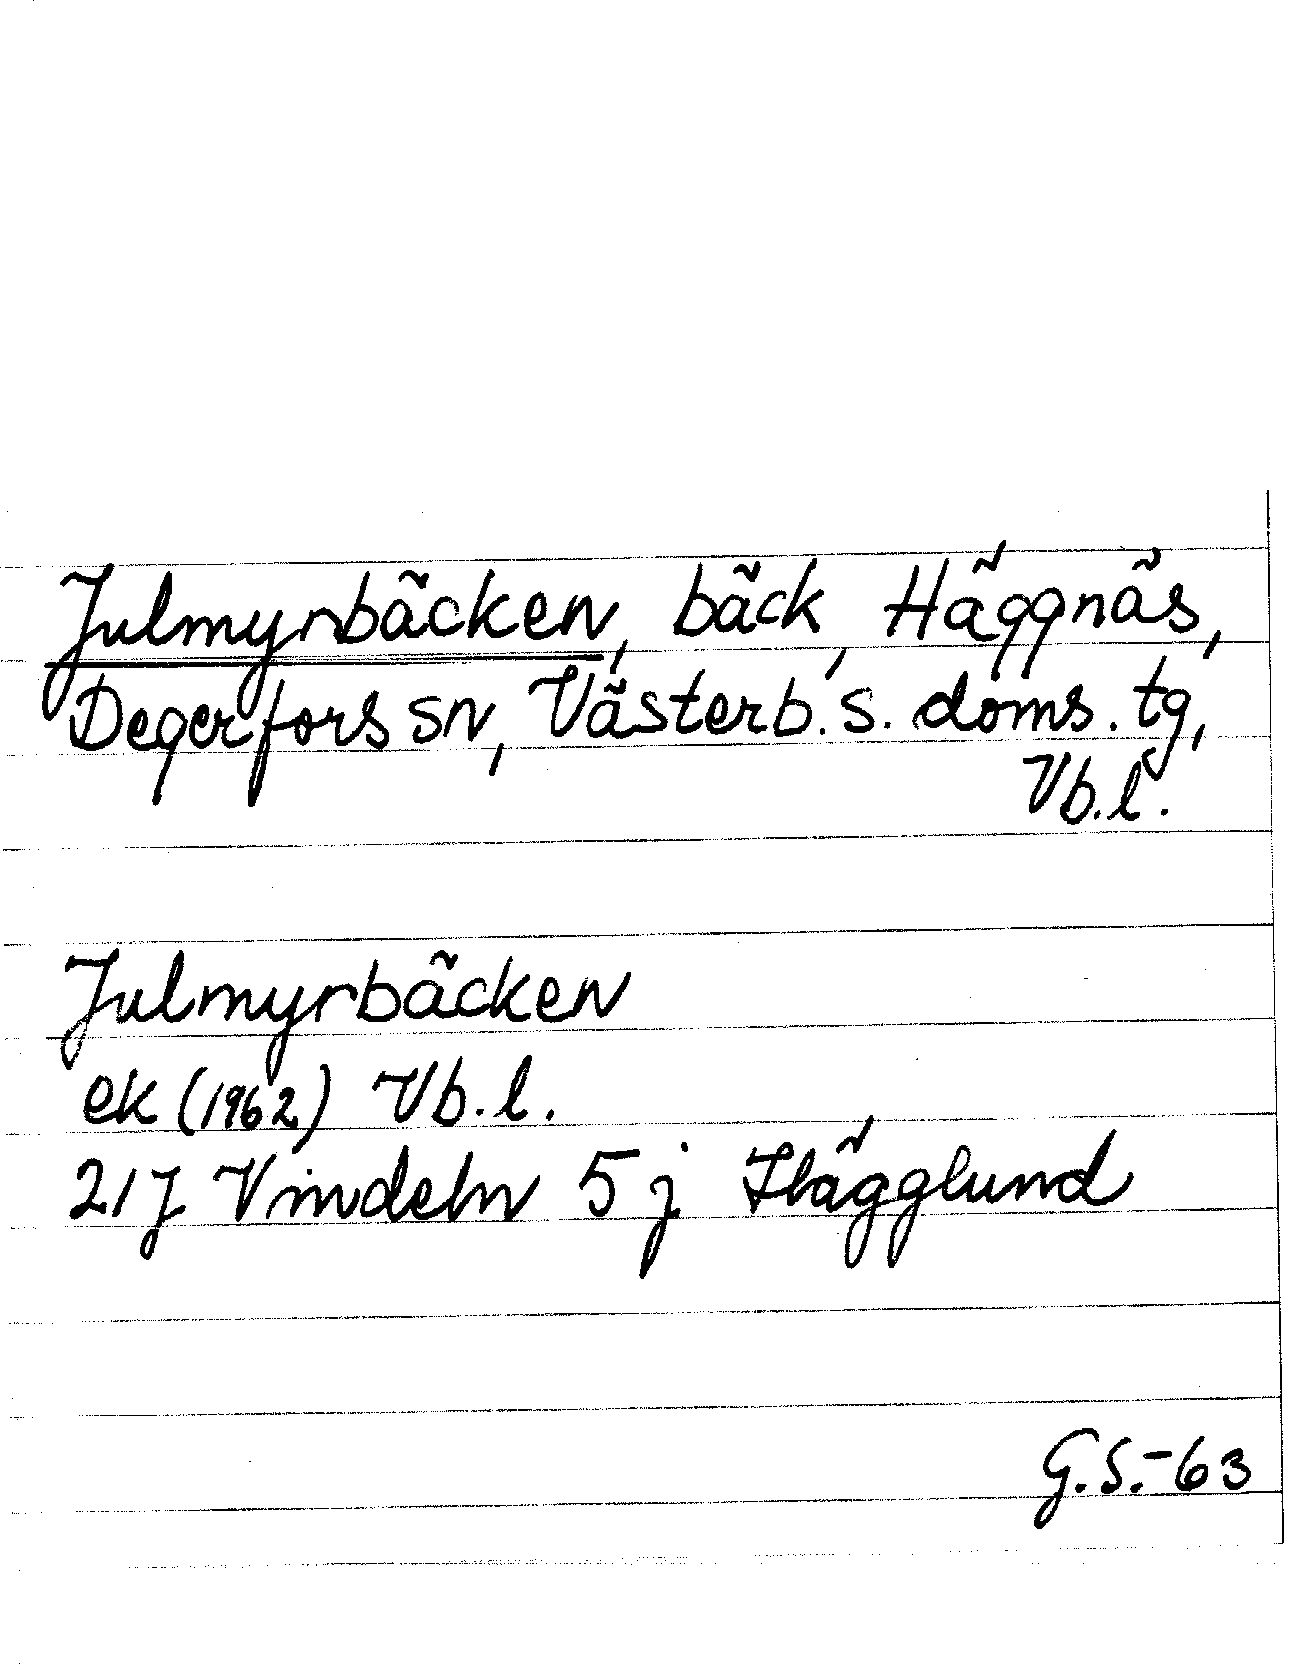 Julmyrbäcken, bäck, Häggnäs,
Degerfors sn, Västerb. s. doms. tg,
Vb. l.
Julmyrbäcken
ek (1962) Vb. l.
21J Vindeln 5 j Hägglund
G.S.-63